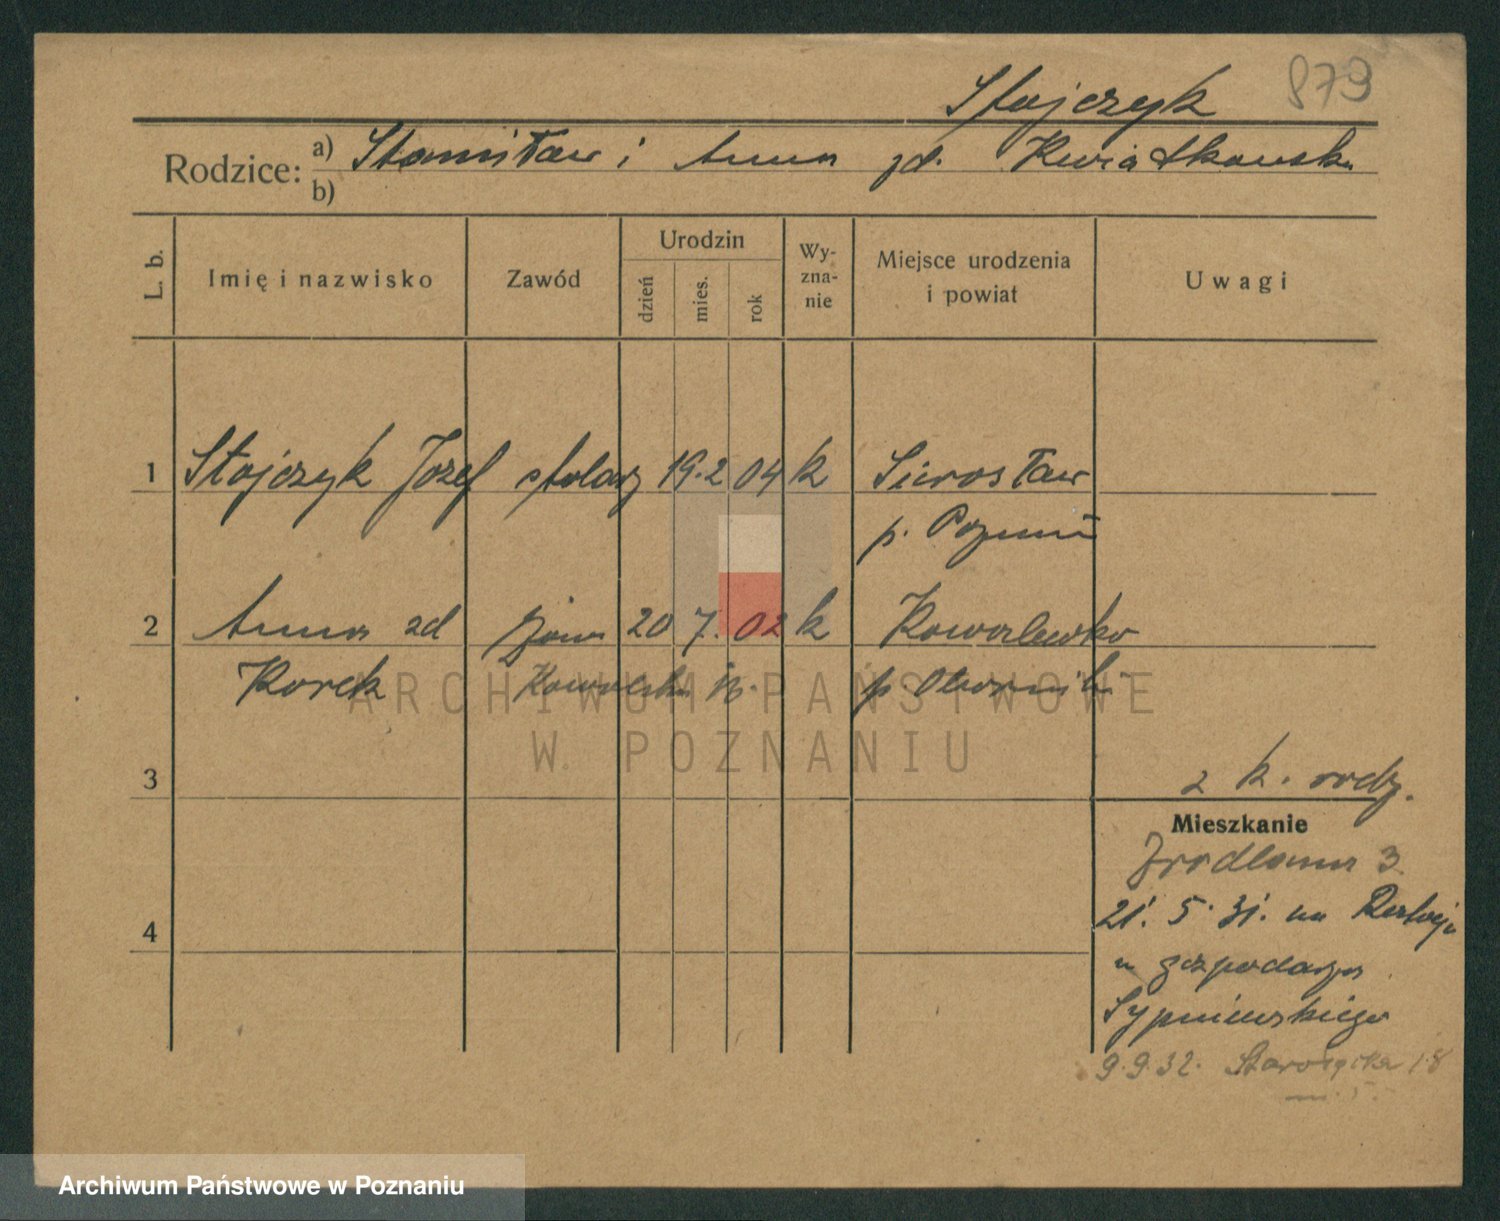 Stajczyk 879
Rodzice: a) Stanisław i Anna zd. Kwiatkowska
b)
L. b. Imię i nazwisko Zawód Urodzin dzień mies. rok Wy-zna-nie Miejsce urodzenia i powiat Uwagi
1 Stajczyk Józef stolarz 19. 2 04 k Sierosław
p. Poznań
2 Anna zd żona 20 7. 02 k Kowalewko
Korek p. Obornik
ARCHIWUM PAŃSTWOWE
W POZNANIU
3 z k. rodz.
Mieszkanie
Źrodlana 3
21. 5. 31. na
4
u gospodarza
Sypniewskiego
9. 9. 32. Starołęcka 18
Archiwum Państwowe w Poznaniu